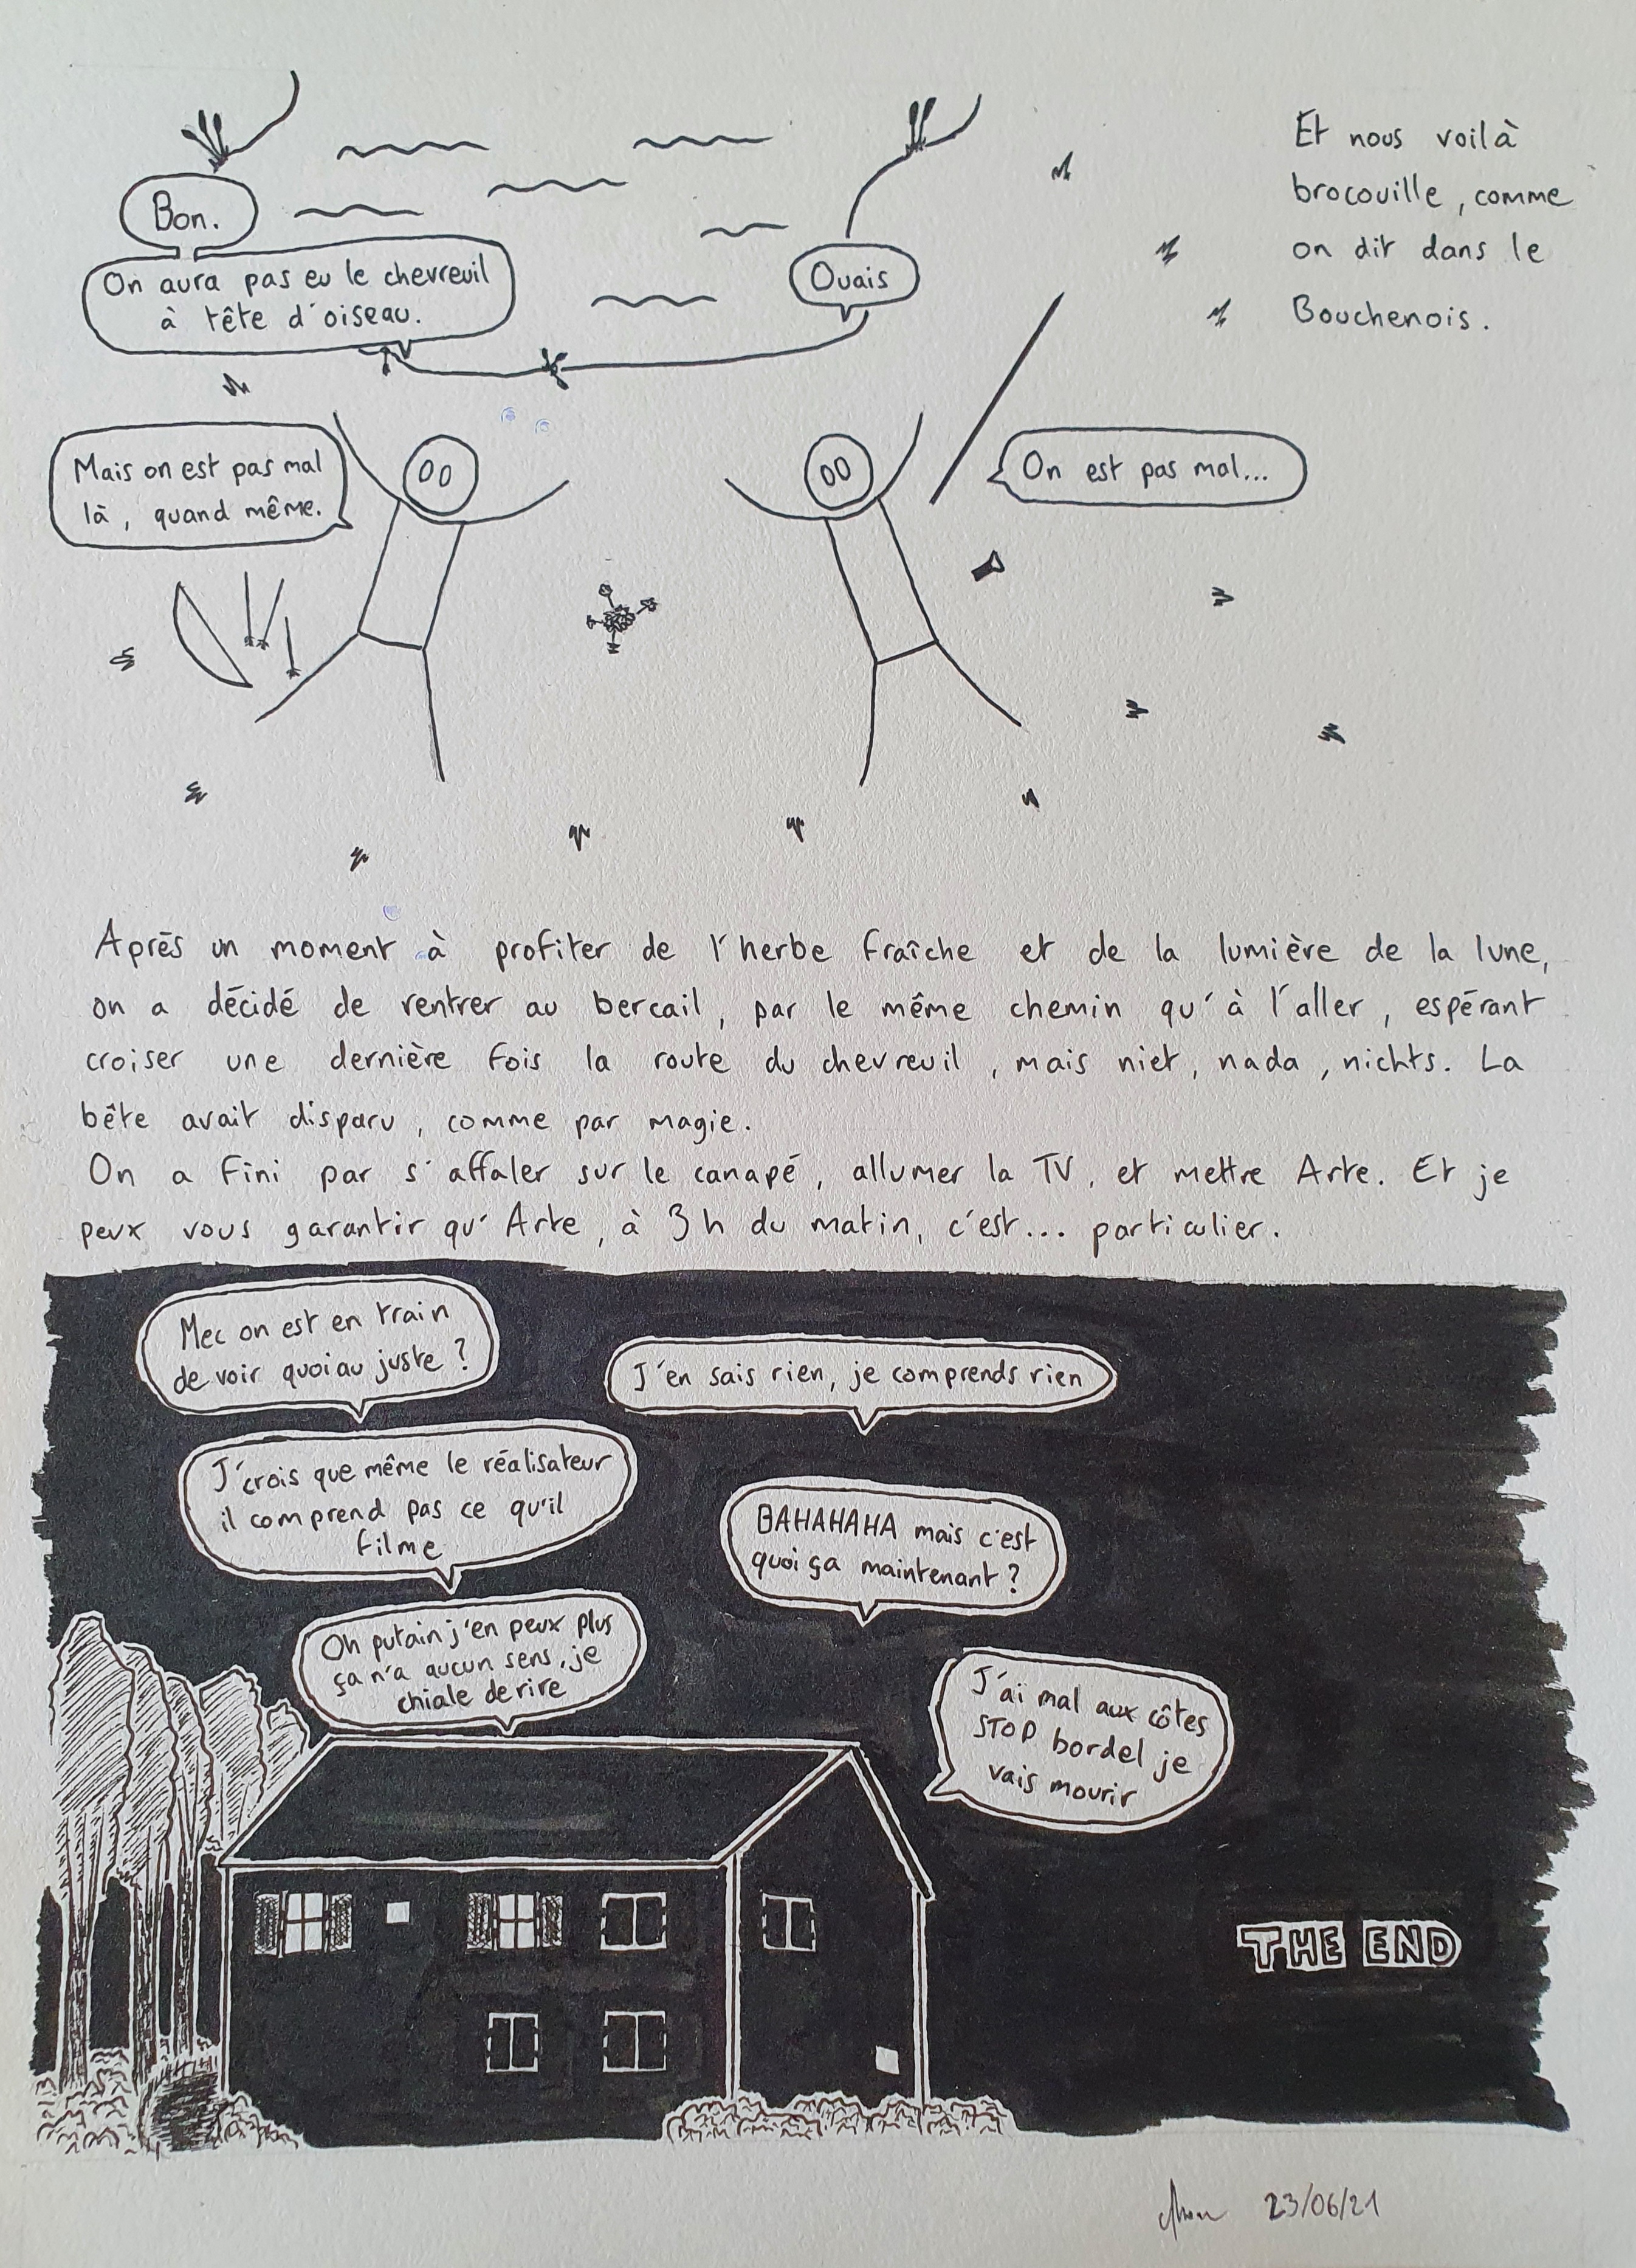 Bon.
On aura pas eu le chevreuil
à tête d'oiseau.
Ouais
Et nous voilà
brocouille, comme
on dit dans le
Bouchenois.
Mais on est pas mal
là, quand même.
On est pas mal...
Après un moment à profiter de l'herbe fraîche et de la lumière de la lune,
on a décidé de rentrer au bercail, par le même chemin qu'à l'aller, espérant
croiser une dernière fois la route du chevreuil, mais niet, nada, nichts. La
bête avait disparu, comme par magie.
On a fini par s'affaler sur le canapé, allumer la TV, et mettre Arte. Et je
peux vous garantir qu'Arte, à 3h du matin, c'est... particulier.
Mec on est en train
de voir quoi au juste ?
J'en sais rien, je comprends rien
J'crois que même le réalisateur
il comprend pas ce qu'il
filme
BAHAHAHA mais c'est
quoi ça maintenant ?
Oh putain j'en peux plus
ça n'a aucun sens, je
chiale de rire
J'ai mal aux côtes
STOP bordel je
vais mourir
THE END
23/06/21